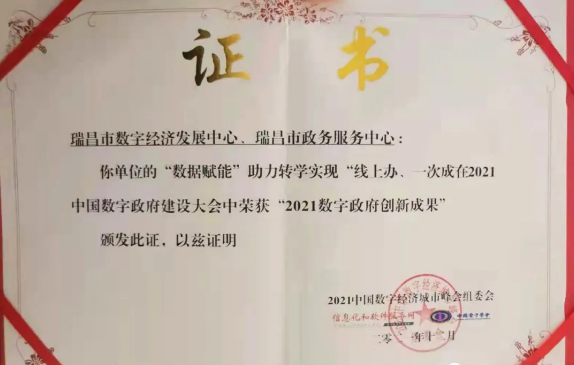 证 书
瑞昌市数字经济发展中心、瑞昌市政务服务中心:
你单位的“数据赋能”助力转学实现“线上办、一次成在2021
中国数字政府建设大会中荣获“2021数字政府创新成果”
颁发此证,以兹证明
2021中国数字经济城市峰会组委会
信息化和软件服务网
中国电子学会
二〇二一年十一月